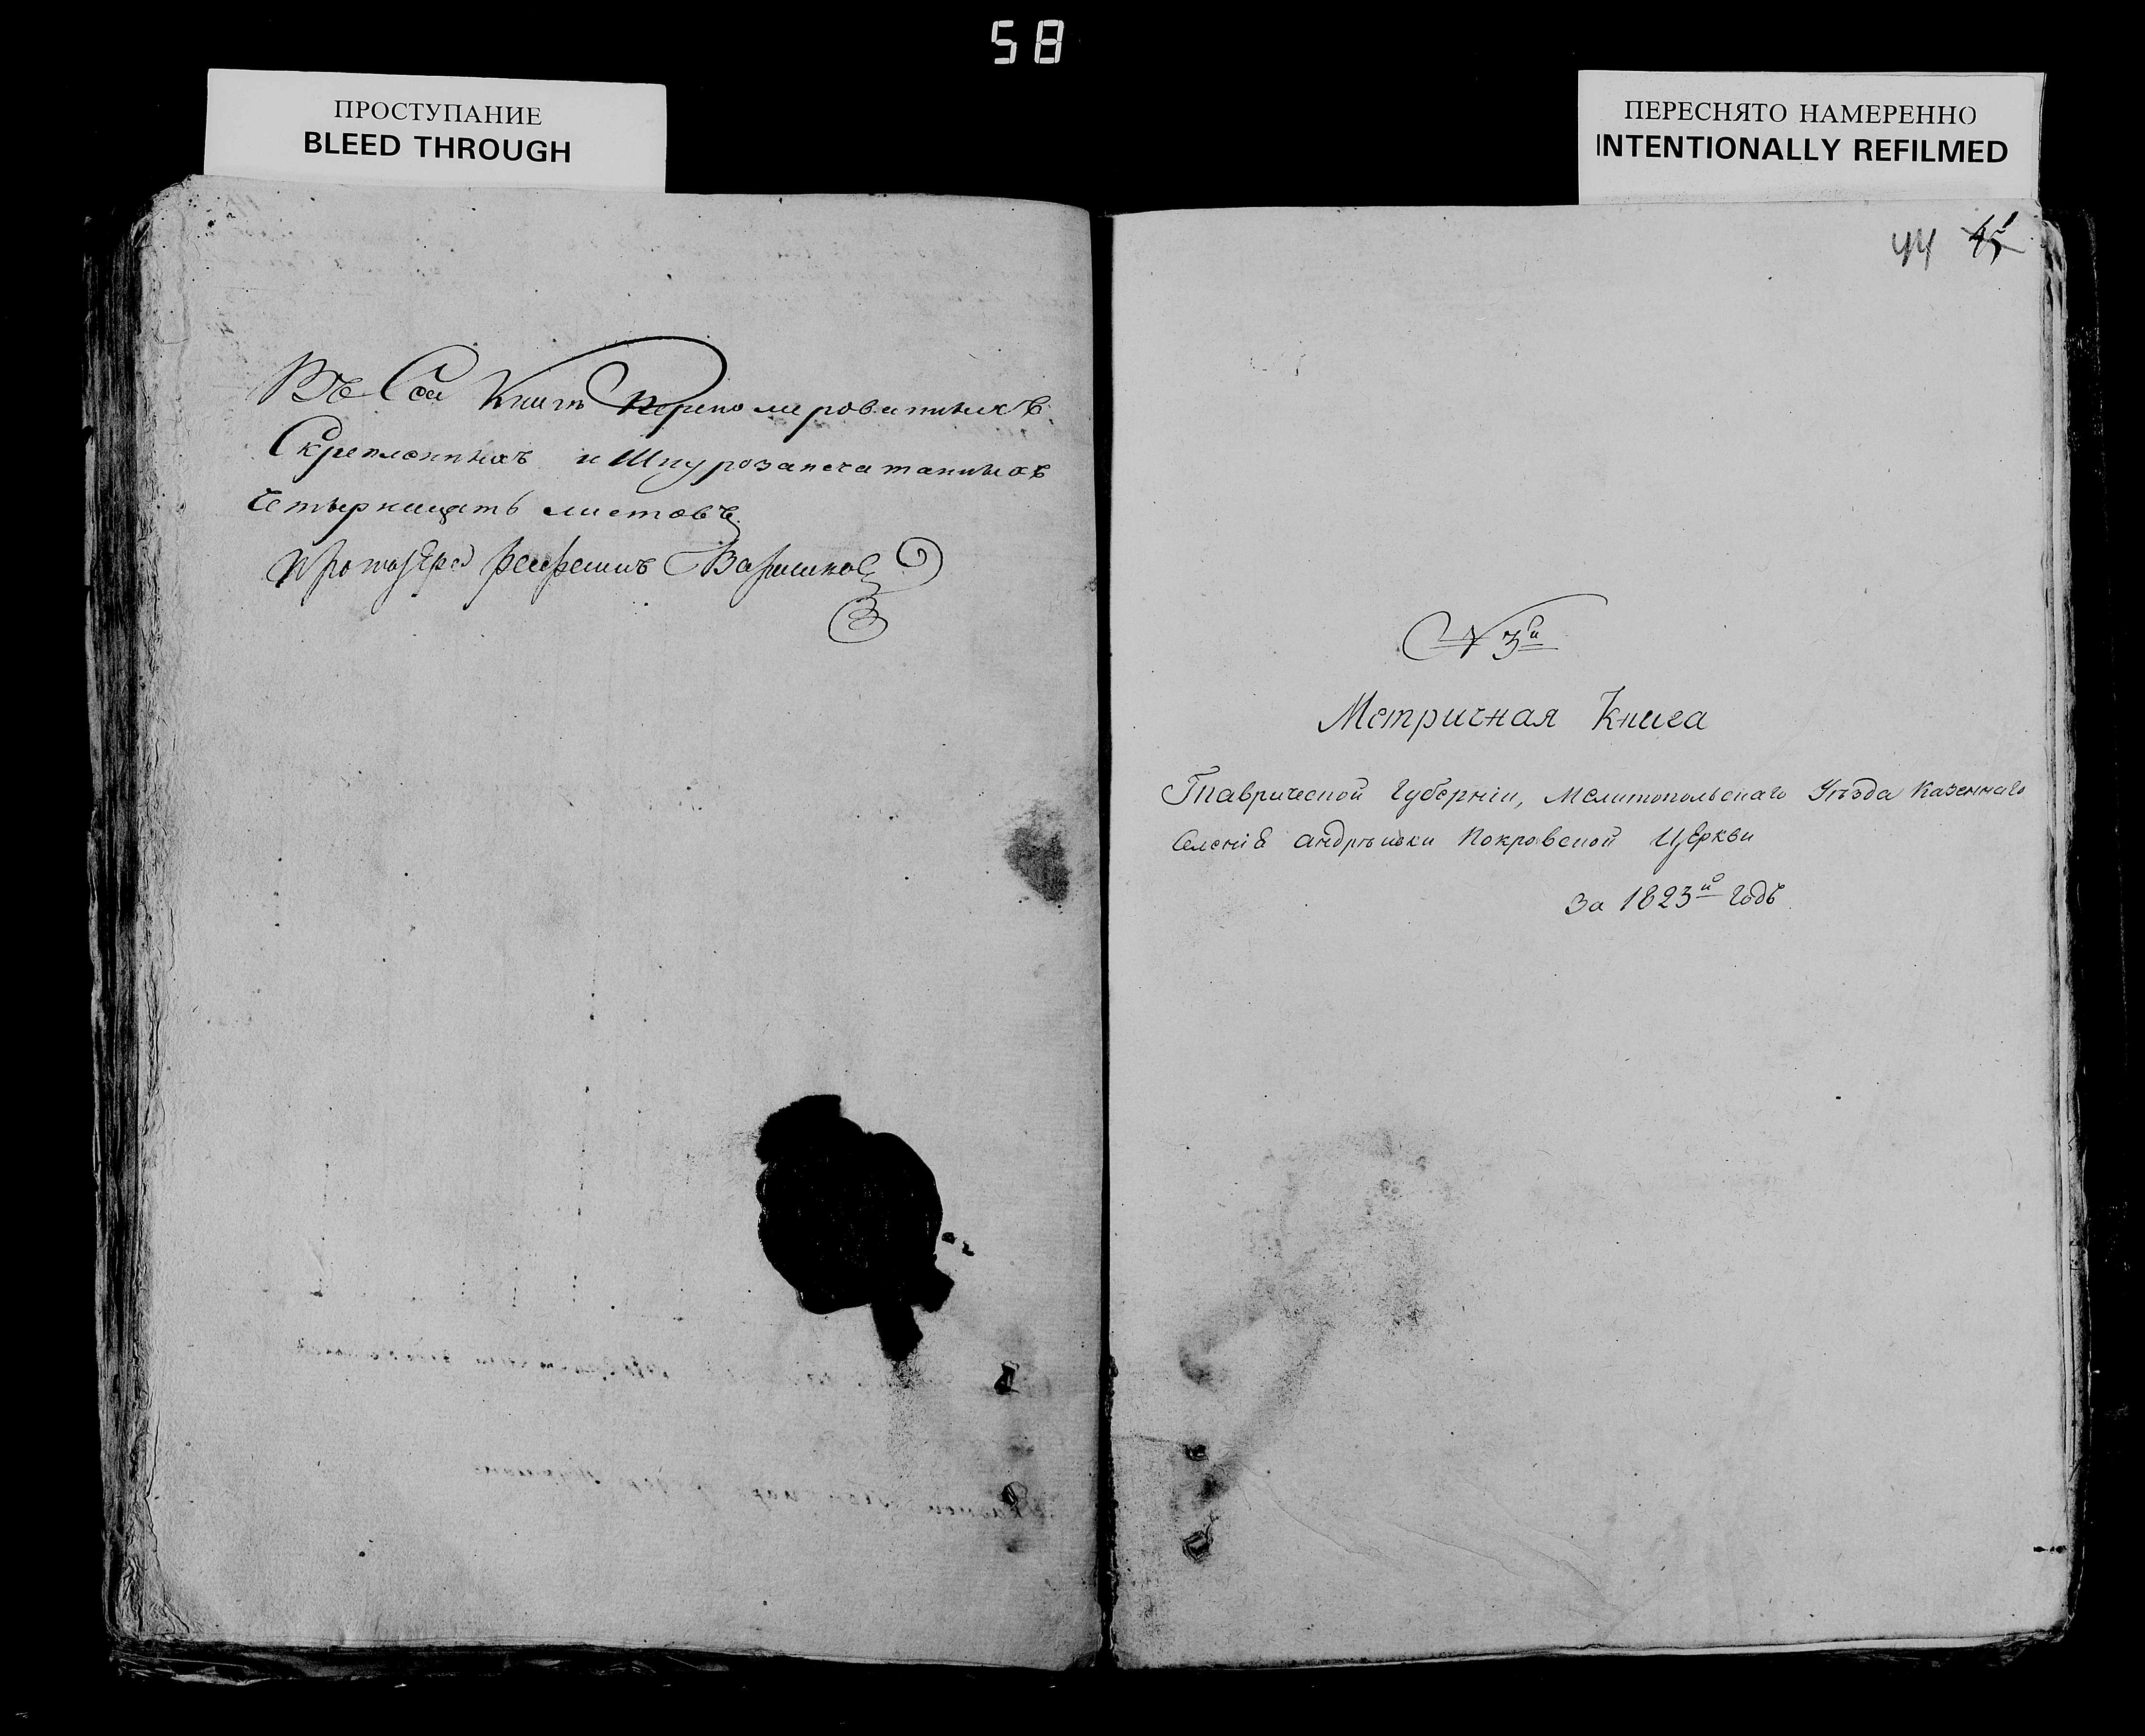 58
ПРОСТУПАНИЕ
BLEED THROUGH
ПЕРЕСНЯТО НАМЕРЕННО
INTENTIONALLY REFILMED
Въ Сей Книгѣ перенумерованныхъ
Скрепленныхъ и Шнурозапечатанныхъ
Четырнацать листовъ
протоіерей
44 45
N 3й
Метричная Книга
Таврической Губерніи, Мелитопольскаго Уѣзда Казеннаго
Селенія Андрѣивки Покровской Церкви
За 1823й Годъ